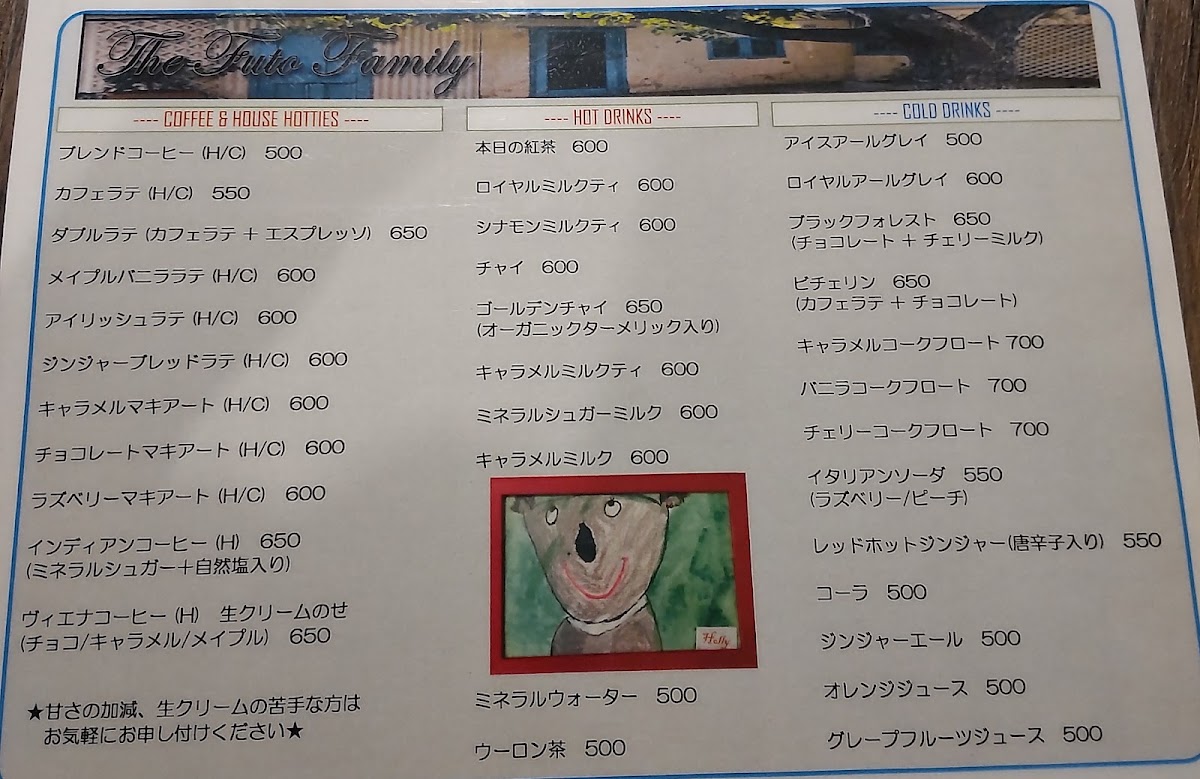 The Futo Family
---- COFFEE & HOUSE HOTTIES ----
ブレンドコーヒー (H/C) 500
カフェラテ (H/C) 550
ダブルラテ (カフェラテ + エスプレッソ) 650
メイプルバニララテ (H/C) 600
アイリッシュラテ (H/C) 600
ジンジャーブレッドラテ (H/C) 600
キャラメルマキアート (H/C) 600
チョコレートマキアート (H/C) 600
ラズベリーマキアート (H/C) 600
インディアンコーヒー (H) 650
(ミネラルシュガー+自然塩入り)
ヴィエナコーヒー (H) 生クリームのせ
(チョコ/キャラメル/メイプル) 650
★甘さの加減、生クリームの苦手な方は
お気軽にお申し付けください★
---- HOT DRINKS ----
本日の紅茶 600
ロイヤルミルクティ 600
シナモンミルクティ 600
チャイ 600
ゴールデンチャイ 650
(オーガニックターメリック入り)
キャラメルミルクティ 600
ミネラルシュガーミルク 600
キャラメルミルク 600
Holly
ミネラルウォーター 500
ウーロン茶 500
---- COLD DRINKS ----
アイスアールグレイ 500
ロイヤルアールグレイ 600
ブラックフォレスト 650
(チョコレート + チェリーミルク)
ビチェリン 650
(カフェラテ + チョコレート)
キャラメルコークフロート 700
バニラコークフロート 700
チェリーコークフロート 700
イタリアンソーダ 550
(ラズベリー/ピーチ)
レッドホットジンジャー(唐辛子入り) 550
コーラ 500
ジンジャーエール 500
オレンジジュース 500
グレープフルーツジュース 500